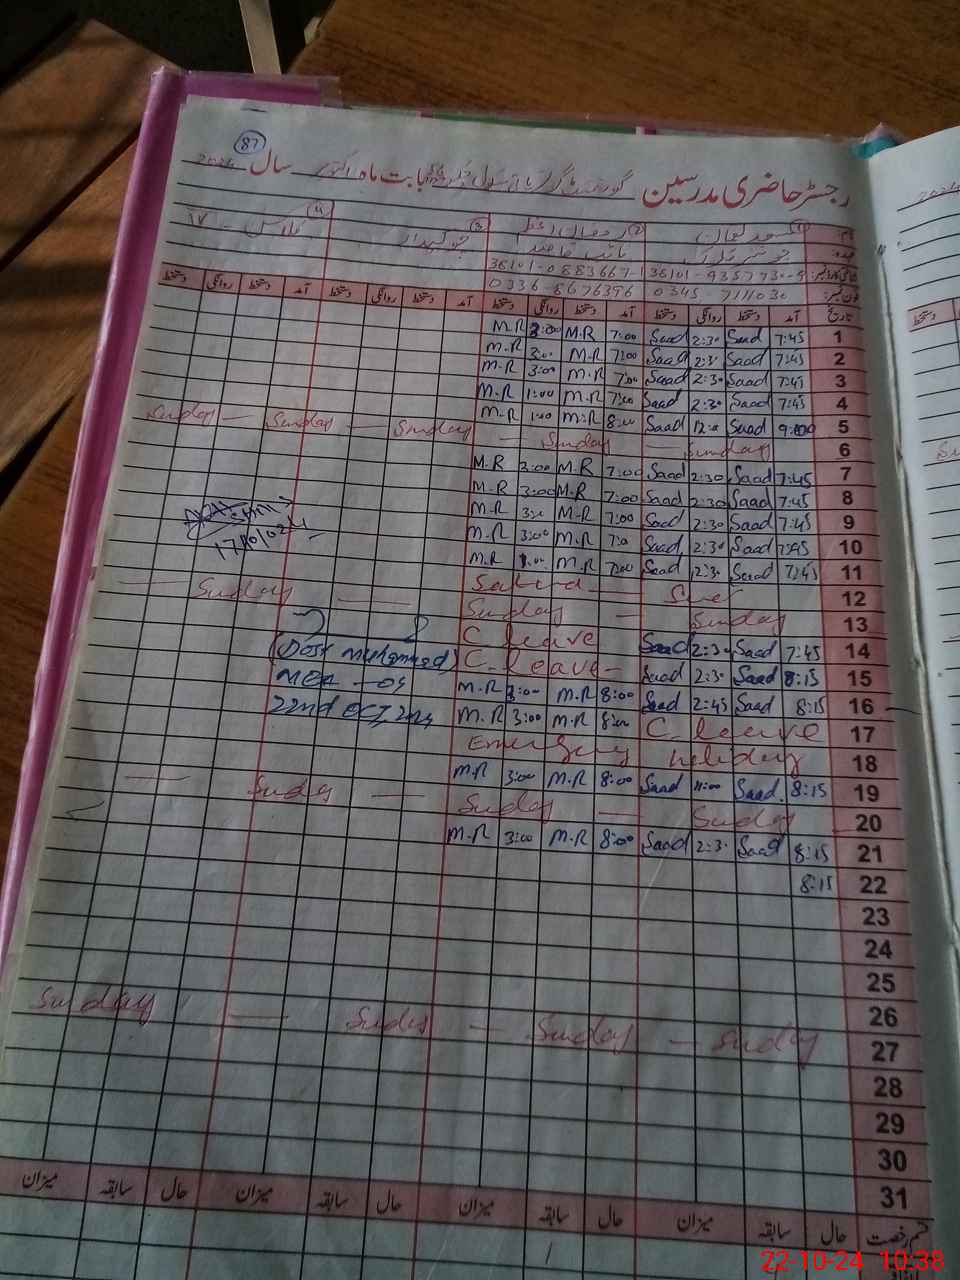 87
رجسٹر حاضری مدرسین گورنمنٹ گرلز ہائی سکول بابت ماہ اکتوبر سال 2024
نام (1) سعد (2) رمضان (3) (4)
عہدہ نائب قاصد چوکیدار کلاس - IV
شناختی کارڈ نمبر 36101-0883667-1
فون نمبر 0345-7111030 0336-8676396
تاریخ آمد دستخط روانگی دستخط آمد دستخط روانگی دستخط آمد دستخط روانگی دستخط آمد دستخط روانگی دستخط
M.R 3:00 M.R 7:00 Saad 2:30 Saad 7:45 1
M.R 3:00 M.R 7:00 Saad 2:30 Saad 7:45 2
M.R 3:00 M.R 7:00 Saad 2:30 Saad 7:45 3
M.R 1:00 M.R 7:00 Saad 2:30 Saad 7:45 4
M.R 1:00 M.R 8:00 Saad 12:0 Saad 9:00 5
Sunday — Sunday — Sunday — Sunday — Sunday 6
M.R 3:00 M.R 7:00 Saad 2:30 Saad 7:45 7
M.R 3:00 M.R 7:00 Saad 2:30 Saad 7:45 8
M.R 3:0 M.R 7:00 Saad 2:30 Saad 7:45 9
M.R 3:00 M.R 7:0 Saad 2:30 Saad 7:45 10
M.R 1:00 M.R 7:00 Saad 12:30 Saad 7:45 11
12
— Sunday — Sunday — Sunday 13
C. leave Saad 2:30 Saad 7:45 14
C. leave - Saad 2:30 Saad 8:15 15
M.R 3:00 M.R 8:00 Saad 2:45 Saad 8:15 16
M.R 3:00 M.R 8:00 C. leave 17
Emergency holiday 18
M.R 3:00 M.R 8:00 Saad 11:00 Saad 8:15 19
— Sunday — Sunday — Sunday 20
M.R 3:00 M.R 8:00 Saad 2:30 Saad 8:15 21
8:15 22
23
24
25
26
Sunday — Sunday — Sunday — Sunday 27
28
29
30
31
17/10/024
(Dost Muhammad)
MEA - 09
22nd OCT, 2024
قسم رخصت حال سابقہ میزان حال سابقہ میزان حال سابقہ میزان حال سابقہ میزان
22-10-24 10:38